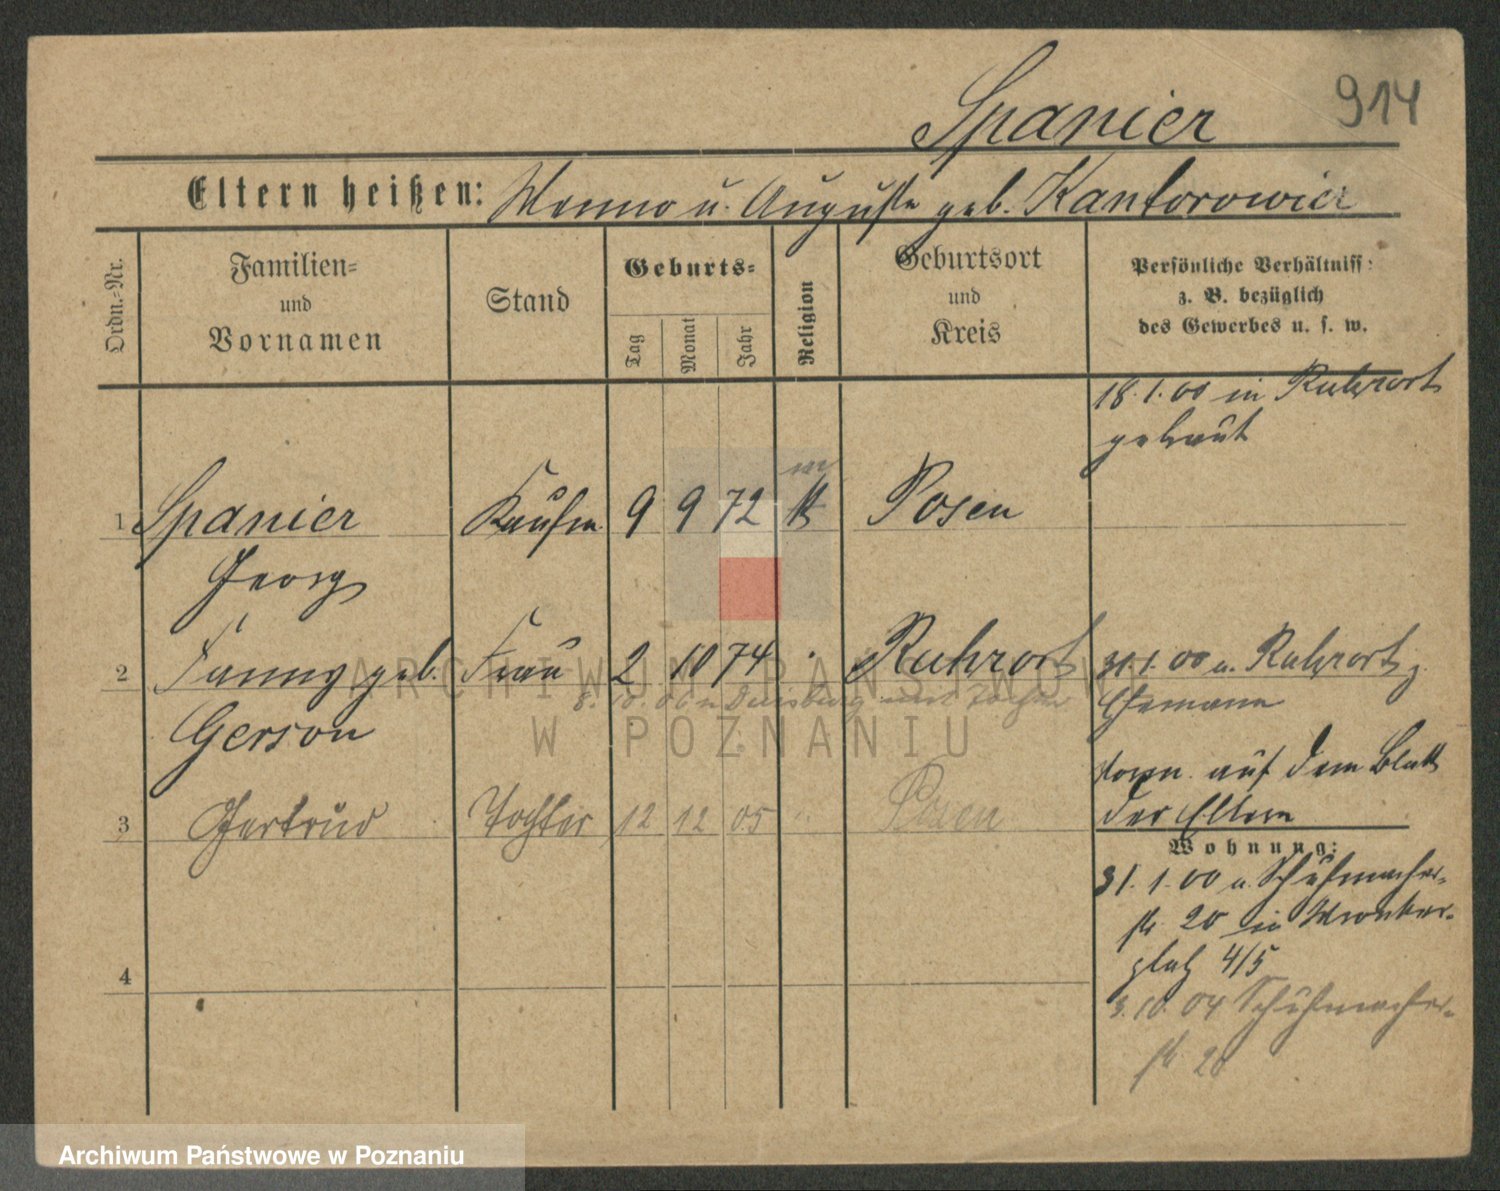 Spanier 914
Eltern heißen: Menno u. Auguste geb. Kantorowicz
Ordn.-Nr.
Familien-
und
Vornamen
Stand
Geburts-
Tag
Monat
Jahr
Religion
Geburtsort
und
Kreis
Persönliche Verhältniss
z. B. bezüglich
des Gewerbes u. s. w.
18.1.00 in Ruhrort
getraut
1 Spanier Kaufm. 9 9 72 Posen
Georg
2 Fanny geb. Frau 2 10 74 Ruhrort 31.1.00 v. Ruhrort z.
8.10.06 n Duisburg mit
Gerson Ehemann
vorn. auf dem Blatt
der Eltern
3 Gertrud Tochter 12 12 05 " Posen
Wohnung:
31.1.00 v. Schuhmacher-
str. 20 in Wronker-
platz 4/5
4
3.10.04 Schuhmacher-
str. 20
ARCHIWUM PAŃSTWOWE
W POZNANIU
Archiwum Państwowe w Poznaniu